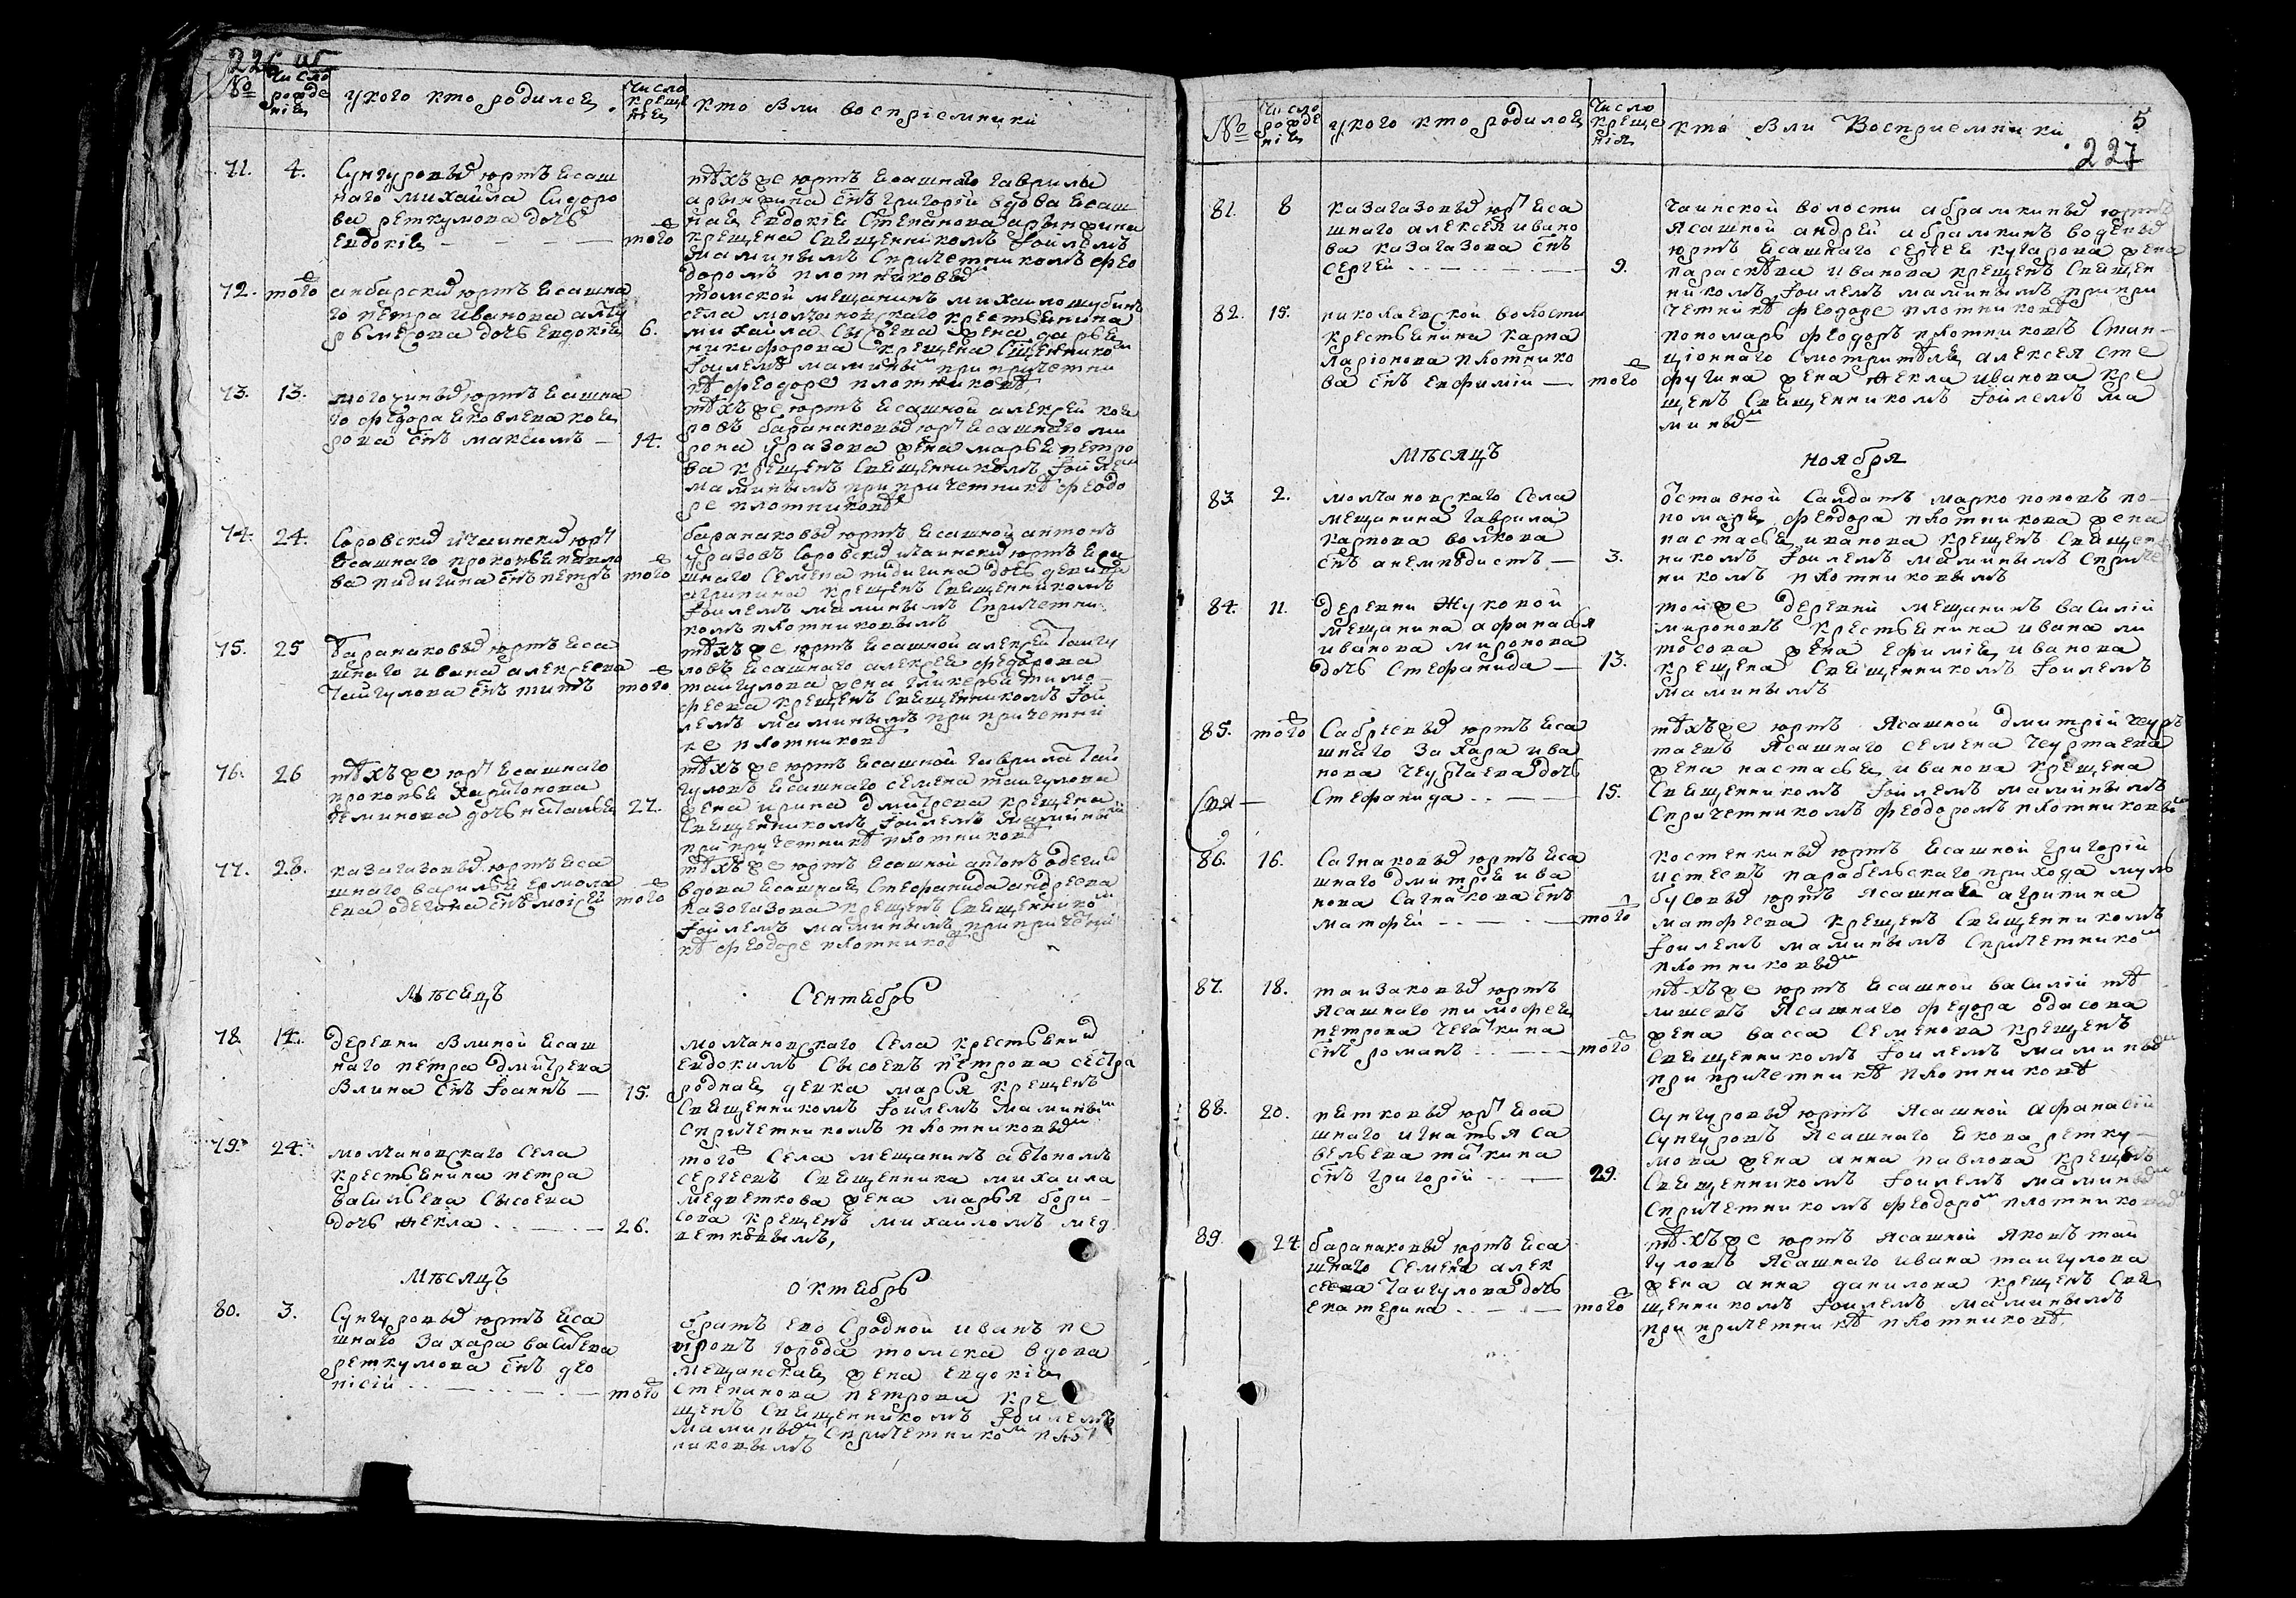 226 об
№
Число рождения
У кого кто родился
Число крещения
Кто были восприемники
71.
4.
Сунгуровыхъ юртъ ясаш
наго Михайла Сидоро
ва реткумова дочь
Евдокия
того
тѣхъ же юртъ ясашнаго Гаврилы
сынъ Григорий вдова ясаш
ная Евдокия Степанова
крещена священникомъ Иоилемъ
Маминымъ с причетникомъ Фео
доромъ Плотниковым
72.
того
анбарских юртъ ясашна
го Петра Иванова
дочь Евдокия
6.
томской мещанинъ Михайло
села Молчановскаго крестьянина
Михайла Сысоева жена Дарья
Никифорова крещена священником
Иоилемъ Маминым при причетни
кѣ Феодоре Плотниковѣ
73.
13.
могочиных юртъ ясашна
го Федора Яковлева коя
рова сынъ Максимъ —
14.
тѣхъ же юртъ ясашной Алексей коя
ровъ баранаковых юртъ ясашнаго Ми
рона Уразова жена Марья Петро
ва крещенъ священникомъ Иоилем
Маминымъ при причетникѣ Феодо
ре Плотниковѣ
74.
24.
Соровских и чаинских юртъ
ясашнаго Прокопья
ва пидигина сынъ Петръ
того
баранаковых юртъ ясашной Антонъ
Уразовъ Соровских чаинских юртъ яса
шнаго Семена пидигина дочь девица
Агрипина крещенъ священникомъ
Иоилемъ Маминымъ с причетни
комъ Плотниковымъ
75.
25
Баранаковых юртъ яса
шнаго Ивана Алексеева
Тангулова сынъ Титъ
того
тѣхъ же юртъ ясашной Алексей Тангу
ловъ ясашнаго Алексея Федорова
тангулова жена Гликерья Тимо
феева крещенъ священникомъ Иои
лемъ Маминымъ при причетни
ке Плотниковѣ
76.
26
тѣхъ же юртъ ясашнаго
Прокопья Харитонова
Деминова дочь Наталья
27.
тѣхъ же юртъ ясашной Гаврила Тан
гуловъ ясашнаго Семена тангулова
жена Ирина Дмитрева крещена
священникомъ Иоилемъ Маминым
при причетникѣ Плотниковѣ
77.
28.
казагазовых юртъ яса
шнаго Василья Ермола
ева одегина сынъ Моисей
того
тѣхъ же юртъ ясашной Антонъ одегин
вдова ясашная Стефанида Андреева
казагазова крещенъ священником
Иоилемъ Маминымъ при причетни
кѣ Феодоре Плотникове
Мѣсяцъ
Сентябрь
78.
14.
деревни Блиной ясаш
наго Петра Дмитрева
Блина сынъ Иоаннъ —
15.
Молчановскаго села крестьянин
Евдокимъ Сысоевъ Петрова сестра
родная девка Марья крещенъ
священникомъ Иоилемъ Маминым
с причетникомъ Плотниковым
79.
24.
Молчановскаго села
крестьянина Петра
Васильева Сысоева
дочь Фекла
26.
того села мещанинъ Автономъ
Сергеевъ священника Михаила
Медветкова жена Марья Бори-
сова крещенъ Михаиломъ Мед
ветковымъ,
Мѣсяцъ
Октябрь
80.
3.
Сунгуровых юртъ яса
шнаго Захара Васильева
реткумова сынъ Део
нисий
того
братъ ево сродной Иванъ Пе
тровъ города Томска вдова
мещанская жена Евдокия
Степанова Петрова кре
щенъ священникомъ Иоилемъ
Маминым с причетником Плот
никовымъ
5
227
№
Число рождения
У кого кто родился
Число крещения
Кто были Восприемники
81.
8
казагазовых юртъ яса
шнаго Алексея Ивано
ва казагазова сынъ
Сергей
9.
чаинской волости абрамкиных юртъ
ясашной Андрей абрамкинъ
юртъ ясашнаго Сергея кугарова жена
Параскева Иванова крещенъ священ
никомъ Иоилемъ Маминымъ при при
четникѣ Феодоре Плотниковѣ
82.
15.
николаевской волости
крестьянина Карпа
Ларионова Плотнико
ва сынъ Евфимий —
того
пономарь Феодоръ Плотниковъ стан-
ционнаго смотрителя Алексея Сте
фугина жена Фекла Иванова кре
щенъ священникомъ Иоилемъ Ма
миным
Мѣсяцъ
Ноября
83
2.
Молчановскаго села
мещанина Гаврила
Карпова Волкова
сынъ Анемподистъ —
3.
Отставной салдатъ Марко Поповъ по-
номаря Феодора Плотникова жена
Настасья Иванова крещенъ священ
никомъ Иоилемъ Маминымъ с приче
никомъ Плотниковымъ
84.
11.
деревни Жуковой
мещанина Афанасья
Иванова Миронова
дочь Стефанида —
13.
той же деревни мещанинъ Василий
Мироновъ крестьянина Ивана Ми
тосова жена Ефимия Иванова
крещена священникомъ Иоилемъ
Маминымъ
85.
того
Сабреевых юртъ яса
шнаго Захара Ива
нова Чеуртаева дочь
Стефанида
15.
тѣхъ же юртъ ясашной Дмитрий Чеур
таевъ ясашнаго Семена Чеуртаева
жена Настасья Иванова крещена
священникомъ Иоилемъ Маминымъ
с причетникомъ Феодоромъ Плотниковым
86.
16.
Сагнаковых юртъ яса
шнаго Дмитрия Ива
нова Сагнакова сынъ
Матфей
того
Костенкиных юртъ ясашной Григорий
Истеевъ Парабельскаго прихода
юртъ ясашная Агрипина
Матфеева крещенъ священникомъ
Иоилемъ Маминымъ с причетником
Плотниковым
87.
18.
тайзаковых юртъ
ясашнаго Тимофея
Петрова Чегаткина
сынъ Романъ
того
тѣхъ же юртъ ясашной Василий тѣ
лишевъ ясашнаго Федора одасова
жена Васса Семенова крещенъ
священникомъ Иоилемъ Маминым
при причетникѣ Плотниковѣ
88.
20.
петковых юртъ яса
шнаго Игнатья Са
вельева Таткина
сынъ Григорий
29.
Сунгуровых юртъ ясашной Афанасий
Сунгуровъ ясашнаго Якова ретку-
мова жена Анна Павлова крещенъ
священникомъ Иоилемъ Маминым
с причетникомъ Феодором Плотниковым
89.
24
Баранаковых юртъ яса
шнаго Семена Алек
сеева Тангулова дочь
Екатерина
того
тѣхъ же юртъ ясашной Яковъ Тан
гуловъ ясашнаго Ивана тангулова
жена Анна Данилова крещенъ свя
щенникомъ Иоилемъ Маминымъ
при причетникѣ Плотниковѣ.